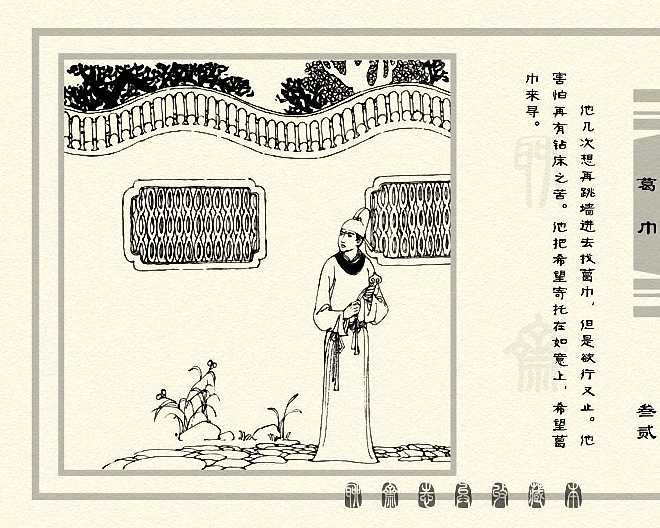 他几次想再跳墙进去找葛巾，但是欲行又止。他
害怕再有钻床之苦。他把希望寄托在如意上，希望葛
巾来寻。
葛巾
叁贰
聊斋志异珍藏本